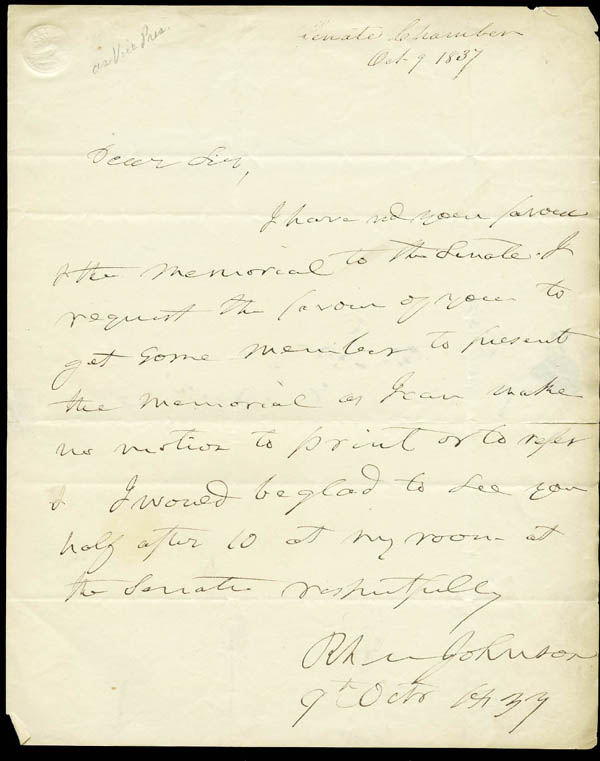 as Vice Pres.
Senate Chamber
Oct 9 1837
Dear Sir,
I have recd your favour
& the memorial to the Senate. I
request the favour of you to
get some member to present
the memorial as I can make
no motion to print or to refer
& I would be glad to see you
half after 10 at my room at
the Senate respectfully
Rh M Johnson
9th Octr 1837